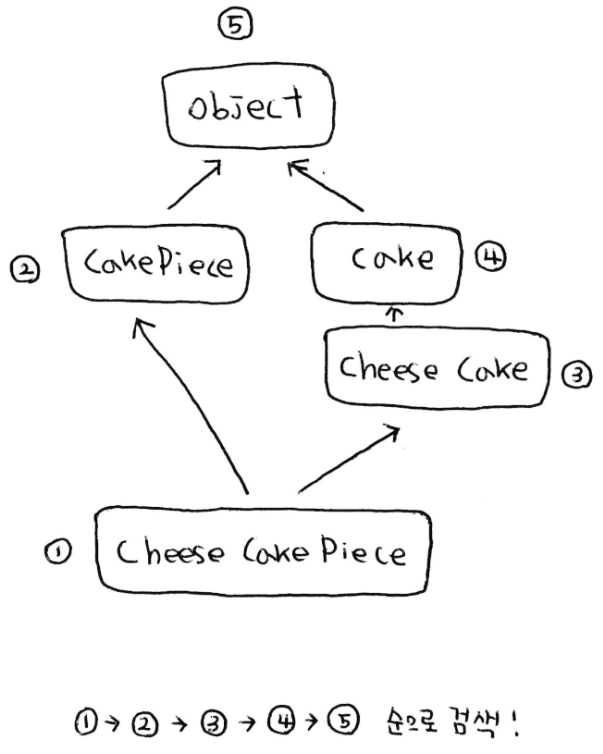 ⑤
object
② CakePiece
Cake ④
Cheese Cake ③
① Cheese Cake Piece
① → ② → ③ → ④ → ⑤ 순으로 검색!